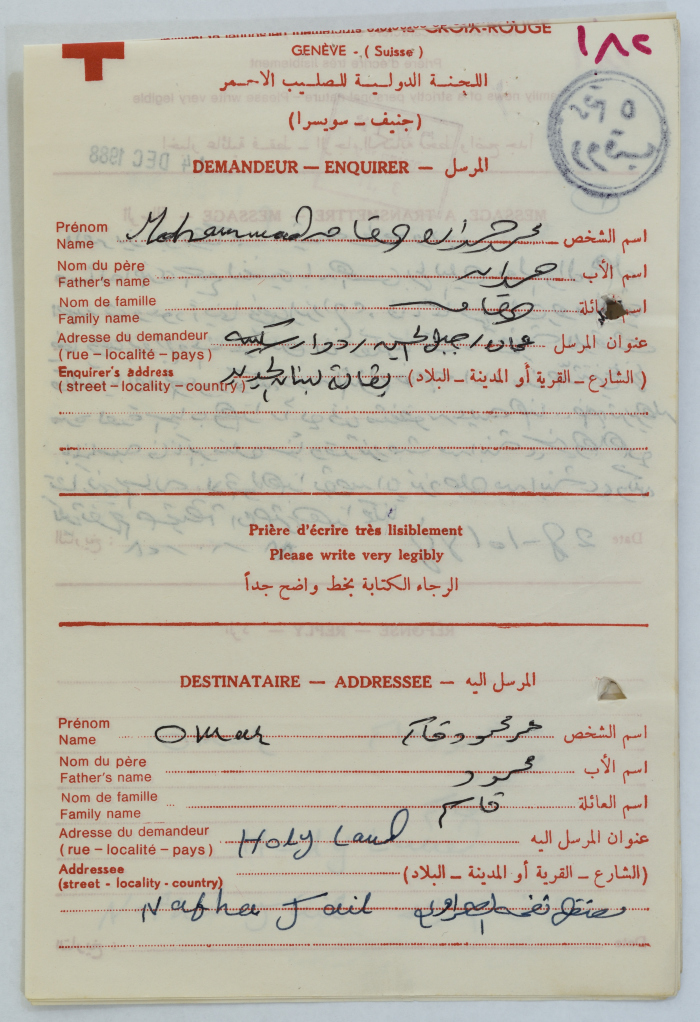 CROIX-ROUGE
١٨٢
GENÈVE - ( Suisse )
اللجنـة الدوليـة للصليـب الاحـمر
(جنيف ــ سويسرا)
DEMANDEUR — ENQUIRER — المرسل
Prénom
Name
Mohammad
اسم الشخص
Nom du père
Father's name
اسم الأب
Nom de famille
Family name
Adresse du demandeur
(rue – localité – pays)
عمان / جبل الحسين / دوار
عنوان المرسل
Enquirer's address
(street – locality – country)
بقالة لبنان الجديد
(الشارع ــ القرية أو المدينة ــ البلاد)
Prière d'écrire très lisiblement
Please write very legibly
الرجاء الكتابة بخط واضح جداً
DESTINATAIRE — ADDRESSEE — المرسل اليه
Prénom
Name
Omar عمر محمود قاسم
اسم الشخص
Nom du père
Father's name
محمود
اسم الأب
Nom de famille
Family name
قاسم
اسم العائلة
Adresse du demandeur
(rue – localité – pays)
Holy Land
عنوان المرسل اليه
Addressee
(street - locality - country)
(الشارع ــ القرية أو المدينة ــ البلاد)
Nafha Jail معتقل نفحه الصحراوي